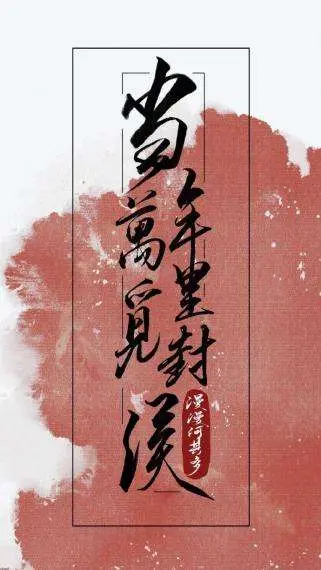 当年萬里覓封侯
漫漫何其多